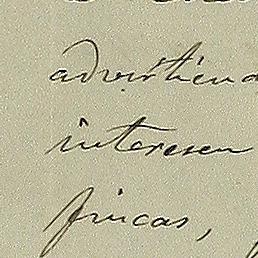 advirtiend
interesen
fincas,